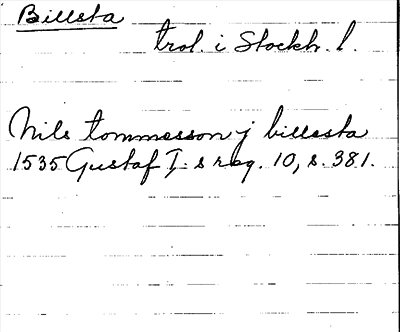 Billsta
trol. i Stockh. l.
Nils tommesson j billesta
1535 Gustaf I:s reg. 10, s. 381.